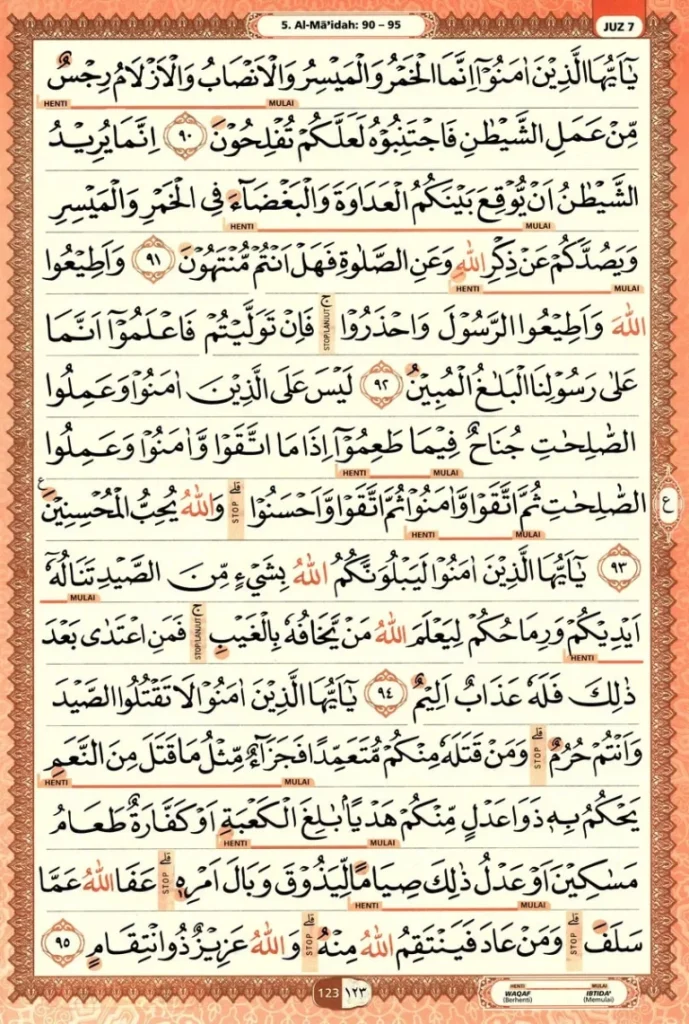 5. Al-Mā'idah: 90 – 95
JUZ 7
يٰٓاَيُّهَا الَّذِيْنَ اٰمَنُوْٓا اِنَّمَا الْخَمْرُ وَالْمَيْسِرُ وَالْاَنْصَابُ وَالْاَزْلَامُ رِجْسٌ
MULAI HENTI
مِّنْ عَمَلِ الشَّيْطٰنِ فَاجْتَنِبُوْهُ لَعَلَّكُمْ تُفْلِحُوْنَ ٩٠ اِنَّمَا يُرِيْدُ
الشَّيْطٰنُ اَنْ يُّوْقِعَ بَيْنَكُمُ الْعَدَاوَةَ وَالْبَغْضَاۤءَ فِى الْخَمْرِ وَالْمَيْسِرِ
MULAI HENTI
وَيَصُدَّكُمْ عَنْ ذِكْرِ اللّٰهِ وَعَنِ الصَّلٰوةِ فَهَلْ اَنْتُمْ مُّنْتَهُوْنَ ٩١ وَاَطِيْعُوا
MULAI HENTI
اللّٰهَ وَاَطِيْعُوا الرَّسُوْلَ وَاحْذَرُوْا ۚ فَاِنْ تَوَلَّيْتُمْ فَاعْلَمُوْٓا اَنَّمَا
STOP/LANJUT
عَلٰى رَسُوْلِنَا الْبَلٰغُ الْمُبِيْنُ ٩٢ لَيْسَ عَلَى الَّذِيْنَ اٰمَنُوْا وَعَمِلُوا
الصّٰلِحٰتِ جُنَاحٌ فِيْمَا طَعِمُوْٓا اِذَا مَا اتَّقَوْا وَّاٰمَنُوْا وَعَمِلُوا
MULAI HENTI
الصّٰلِحٰتِ ثُمَّ اتَّقَوْا وَّاٰمَنُوْا ثُمَّ اتَّقَوْا وَّاَحْسَنُوْا ۗ وَاللّٰهُ يُحِبُّ الْمُحْسِنِيْنَ ع
ع
STOP
MULAI HENTI
٩٣ يٰٓاَيُّهَا الَّذِيْنَ اٰمَنُوْا لَيَبْلُوَنَّكُمُ اللّٰهُ بِشَيْءٍ مِّنَ الصَّيْدِ تَنَالُهٗٓ
MULAI
اَيْدِيْكُمْ وَرِمَاحُكُمْ لِيَعْلَمَ اللّٰهُ مَنْ يَّخَافُهٗ بِالْغَيْبِ ۚ فَمَنِ اعْتَدٰى بَعْدَ
STOP/LANJUT
HENTI
ذٰلِكَ فَلَهٗ عَذَابٌ اَلِيْمٌ ٩٤ يٰٓاَيُّهَا الَّذِيْنَ اٰمَنُوْا لَا تَقْتُلُوا الصَّيْدَ
وَاَنْتُمْ حُرُمٌ ۗ وَمَنْ قَتَلَهٗ مِنْكُمْ مُّتَعَمِّدًا فَجَزَاۤءٌ مِّثْلُ مَا قَتَلَ مِنَ النَّعَمِ
STOP
MULAI HENTI
يَحْكُمُ بِهٖ ذَوَا عَدْلٍ مِّنْكُمْ هَدْيًاۢ بٰلِغَ الْكَعْبَةِ اَوْ كَفَّارَةٌ طَعَامُ
MULAI HENTI
مَسٰكِيْنَ اَوْ عَدْلُ ذٰلِكَ صِيَامًا لِّيَذُوْقَ وَبَالَ اَمْرِهٖ ۗ عَفَا اللّٰهُ عَمَّا
STOP
MULAI HENTI
سَلَفَ ۗ وَمَنْ عَادَ فَيَنْتَقِمُ اللّٰهُ مِنْهُ ۗ وَاللّٰهُ عَزِيْزٌ ذُو انْتِقَامٍ ٩٥
STOP STOP
123 ١٢٣
HENTI MULAI
WAQAF IBTIDA'
(Berhenti) (Memulai)